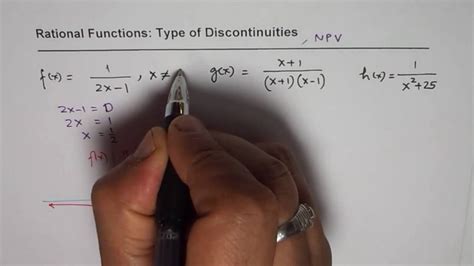 Rational Functions: Type of Discontinuities, NPV
f(x) = 1/(2x-1), x ≠
g(x) = (x+1)/((x+1)(x-1))
h(x) = 1/(x²+25)
2x-1 = 0
2x = 1
x = 1/2
f(x)